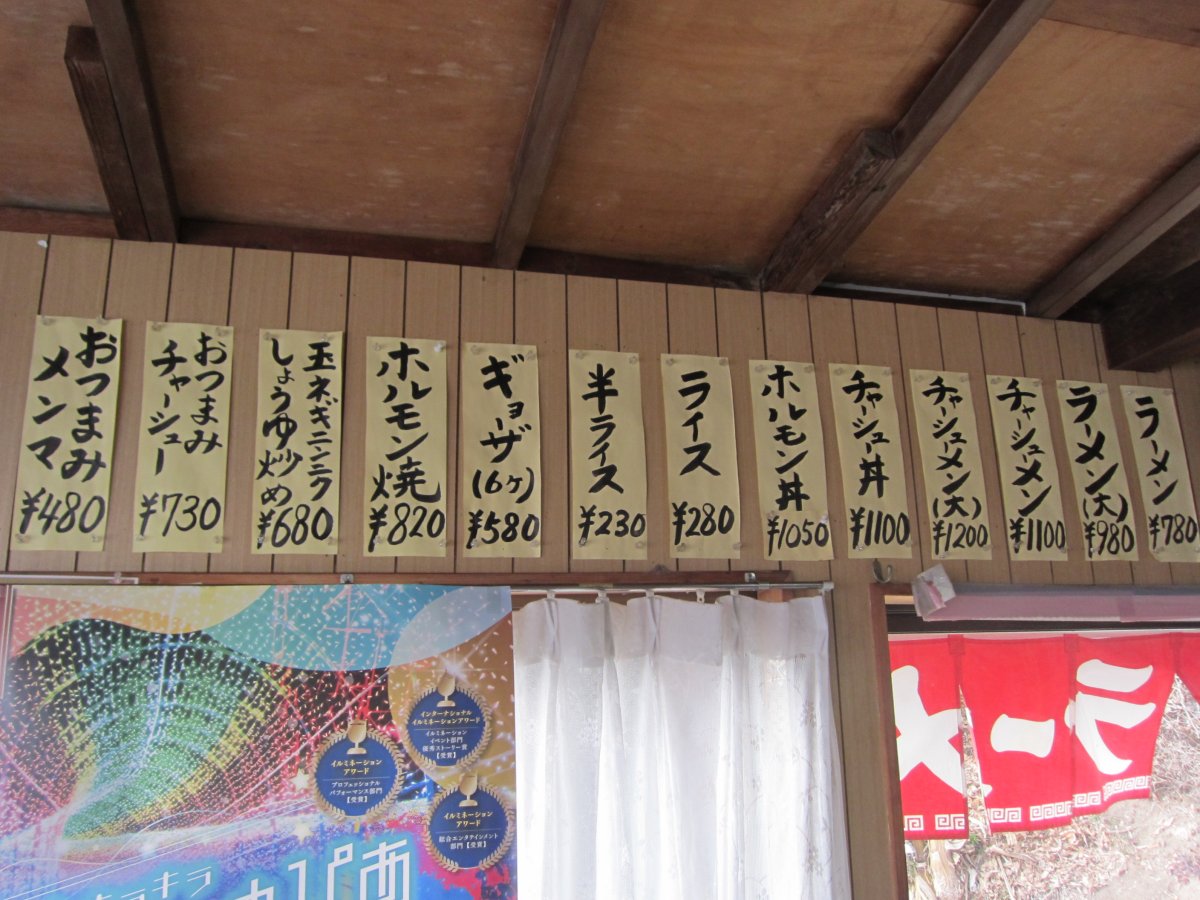 ラーメン
¥780
ラーメン
(大)
¥980
チャーシュメン
¥1100
チャーシューメン
(大)
¥1200
チャーシュー丼
¥1100
ホルモン丼
¥1050
ライス
¥280
半ライス
¥230
ギョーザ
(6ヶ)
¥580
ホルモン焼
¥820
玉ネギニンニク
しょうゆ炒め
¥680
おつまみ
チャーシュー
¥730
おつまみ
メンマ
¥480
インターナショナル
イルミネーションアワード
イルミネーション
イベント部門
優秀ストーリー賞
【受賞】
イルミネーション
アワード
プロフェッショナル
パフォーマンス部門
【受賞】
イルミネーション
アワード
総合エンタテインメント
部門【受賞】
ラーメ